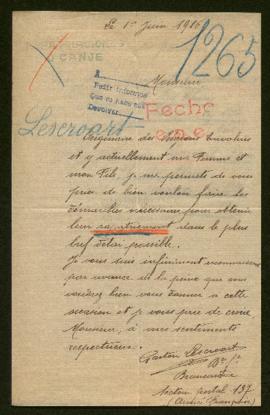 Le 1er Juin 1916
1265
CANJE
Monsieur
A
Pedir informes
Que ya pasó
Devolver
Fecho
Lescroart
Originaire des Régions envahies
et y actuellement ma Femme et
mon Fils, je me permets de vous
prier de bien vouloir faire les
démarches nécessaires pour obtenir
leur rapatriement dans le plus
bref délai possible.
Je vous suis infiniment reconnaissant
par avance de la peine que vous
voudrez bien vous donner à cette
occasion et je vous prie de croire,
Monsieur, à mes sentiments
respectueux.
Lescroart
Secteur postal 137
(Armée Française)